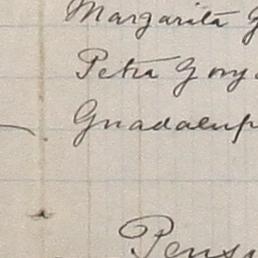 Margarita G
Petra Gonz
Guadalup
Pens